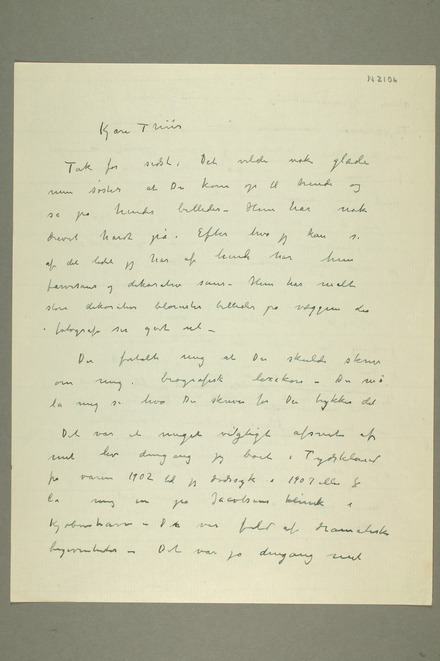 N 2106
Kjære Thiis
Tak for sidst, Det vilde nok glæde
min søster at Du kom op til hende og
se på hendes billeder – Hun har nok
drevet hardt på. Efter hva jeg kan se
af det lidt jeg har af hende har hun
farvesans og dekorativ sans – Hun har malt
store dekorative blomster billeder på væggen
fotografi ser godt ud –
Du fortalte mig at Du skulde skrive
om mig i biografisk lexikon – Du må
la mig se hva Du skriver før Du trykker det
Det var et meget vigtigt afsnit af
mit liv dengang jeg boet i Tydskland
fra våren 1902 til jeg dødssyk i 1907 eller 8
la mig in på Jacobsons klinik i
Kjøbenhavn – Det var fuld af dramatiske
begivenheder – Det var jo dengang med